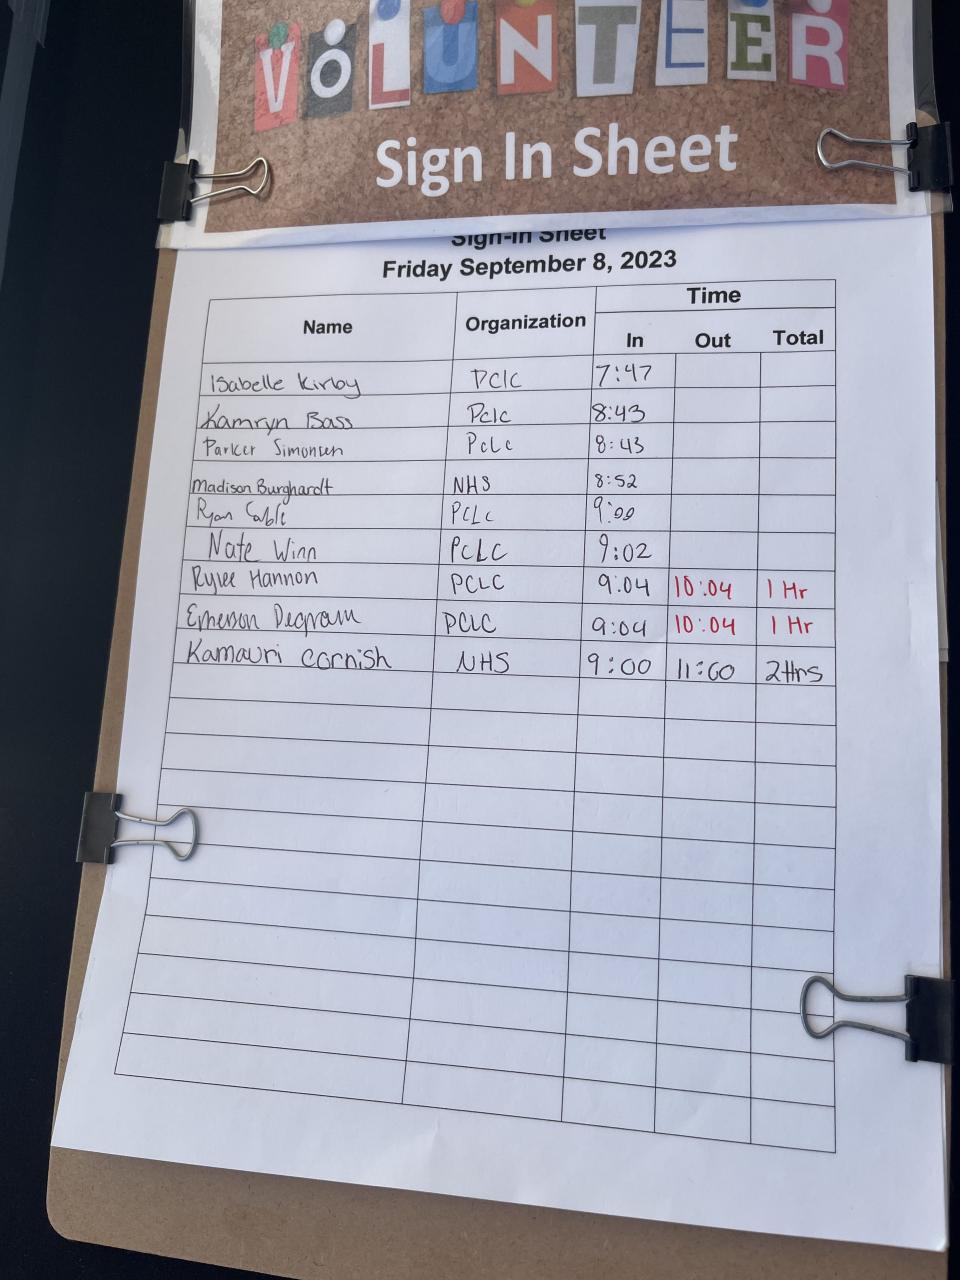 VOLUNTEER
Sign In Sheet
Sign-In Sheet
Friday September 8, 2023
Name Organization Time
In Out Total
Isabelle Kirby PClC 7:47
Kamryn Bass PClC 8:43
Parker Simonsen PcLc 8:43
Madison Burghardt NHS 8:52
Ryan PCLC 9:00
Nate Winn PCLC 9:02
Rylee Hannon PCLC 9:04 10:04 1 Hr
Emerson PCLC 9:04 10:04 1 Hr
Kamauri Cornish NHS 9:00 11:00 2Hrs